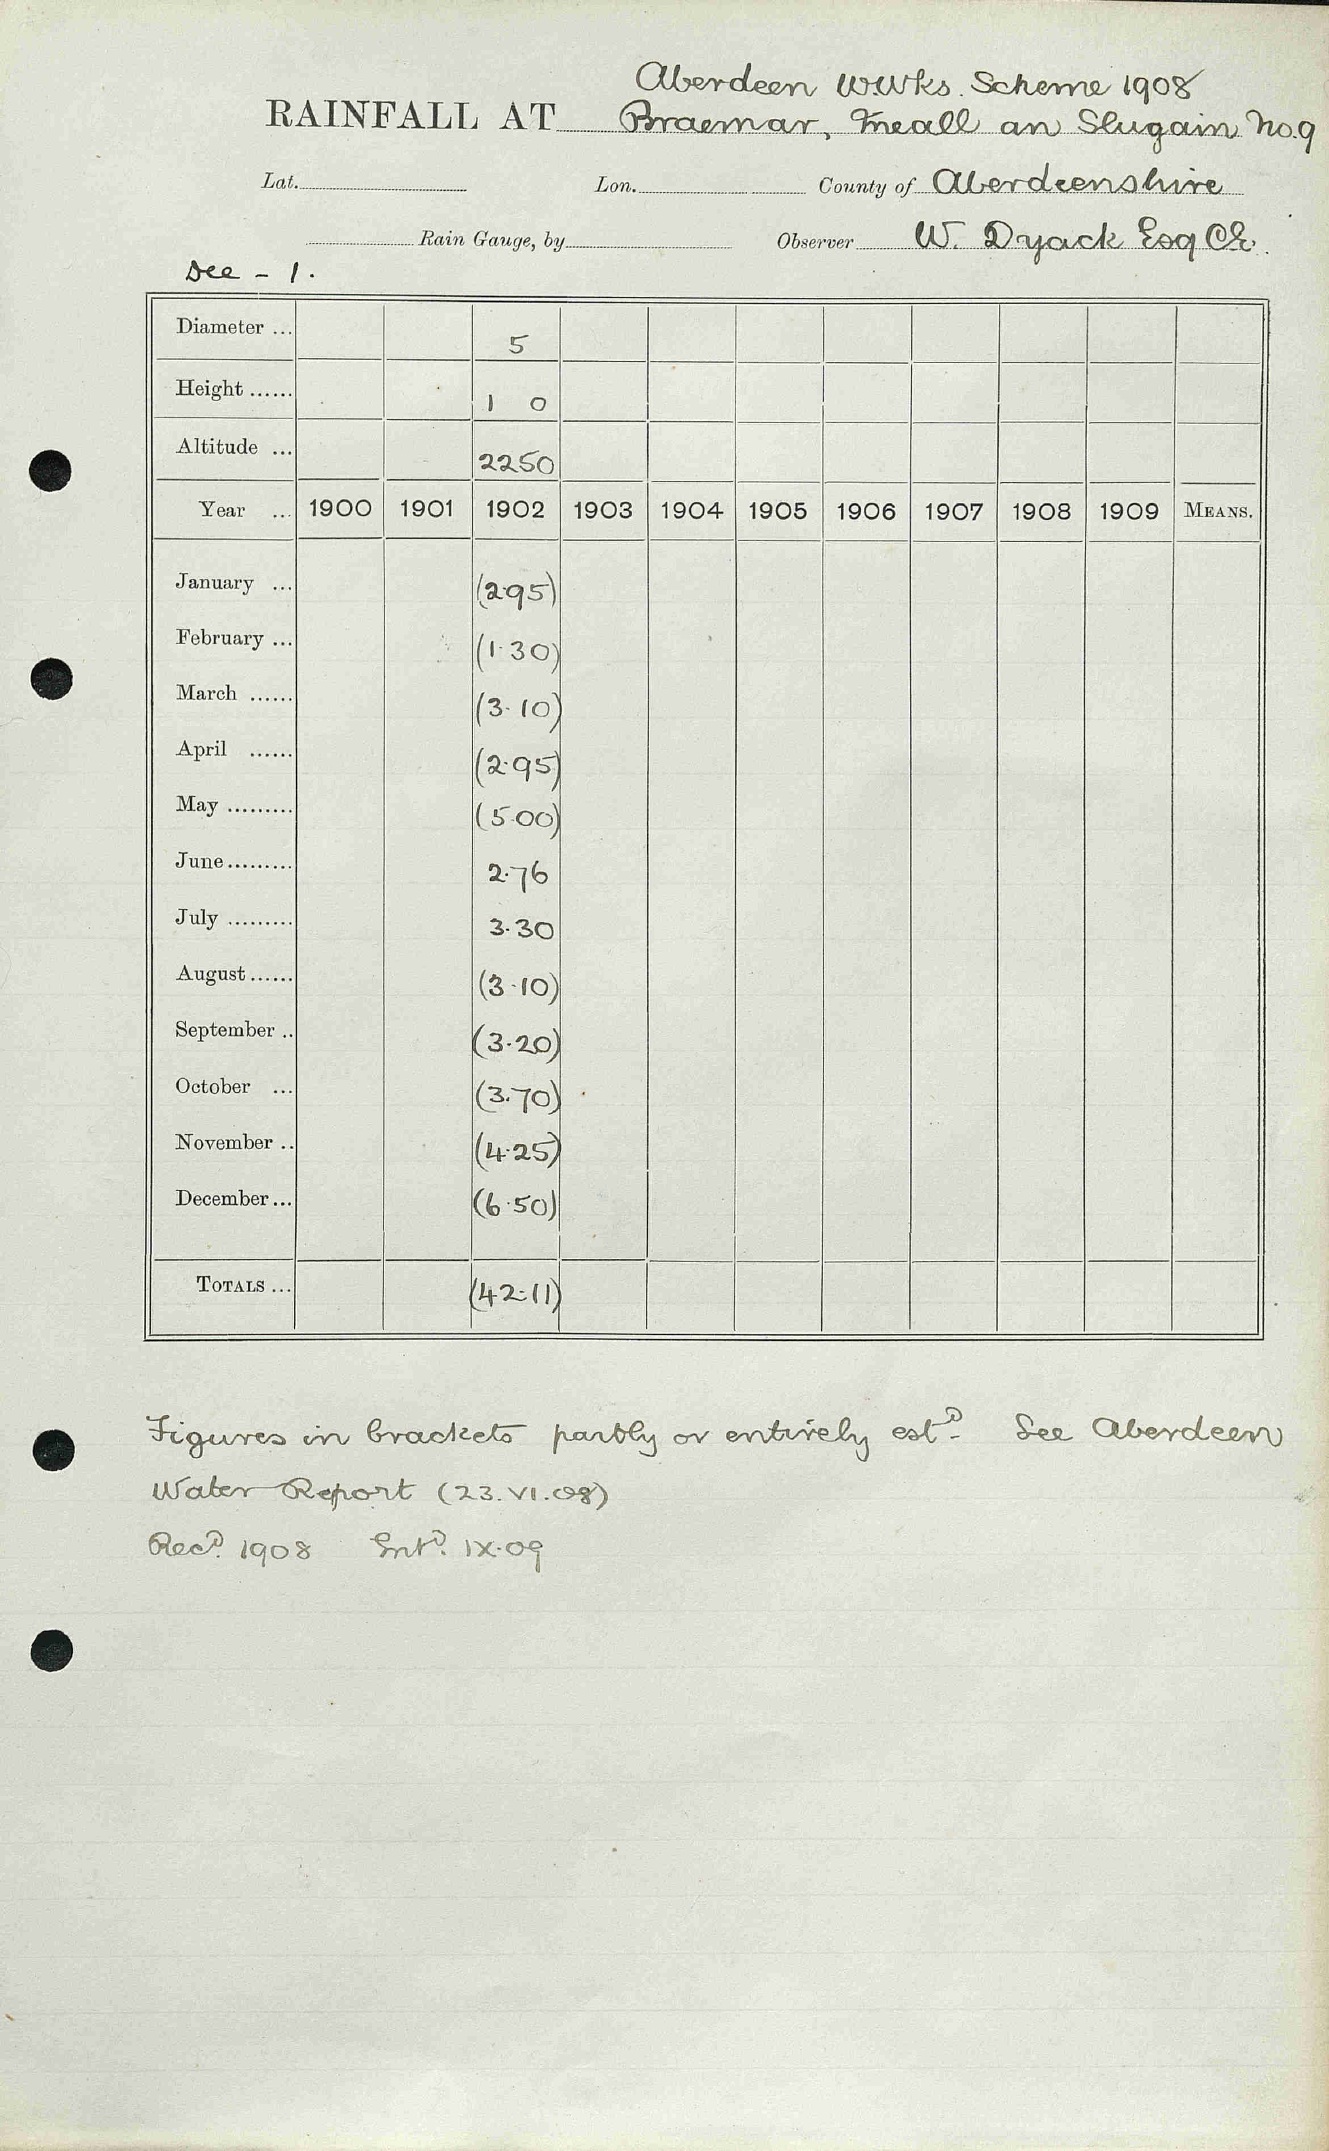 Aberdeen W.Wks. Scheme 1908
RAINFALL AT Braemar, Meall an Slugain No.9
Lat. Lon. County of Aberdeenshire
Rain Gauge, by Observer W. Dyack Esq CE.
Dee - 1.
Diameter ... 5
Height ...... 1 0
Altitude ... 2250
Year ... 1900 1901 1902 1903 1904 1905 1906 1907 1908 1909 MEANS.
January ... (2.95)
February ... (1.30)
March ...... (3.10)
April ...... (2.95)
May ......... (5.00)
June ......... 2.76
July ......... 3.30
August ...... (3.10)
September .. (3.20)
October ... (3.70)
November .. (4.25)
December ... (6.50)
TOTALS ... (42.11)
Figures in brackets partly or entirely estD. See Aberdeen
Water Report (23.VI.08)
RecD. 1908 EntD. IX.09